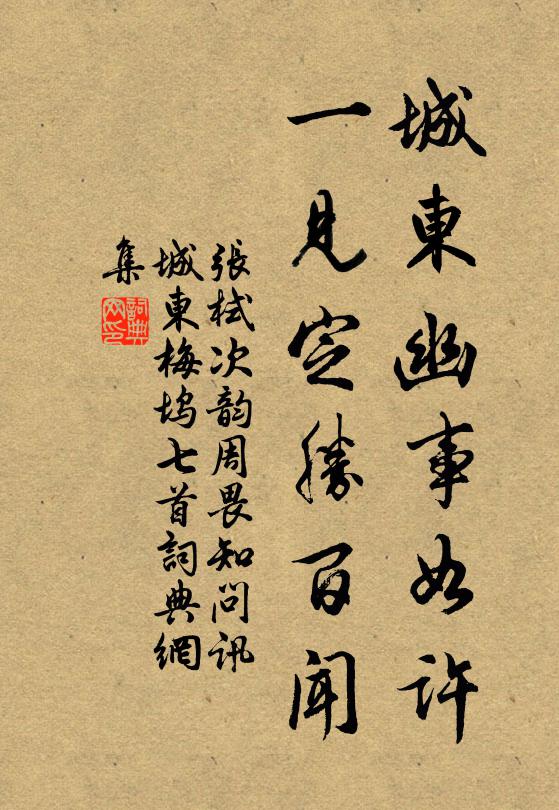 城東幽事如許
一見定勝百聞
張栻次韵周畏知問訊
城東梅塢七首詞典網
集
詞典
网印